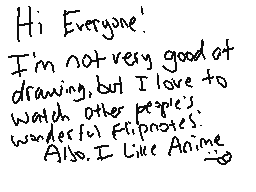 Hi Everyone!
I'm not very good at
drawing, but I love to
watch other people's
wonderful flipnotes!
Also, I Like Anime